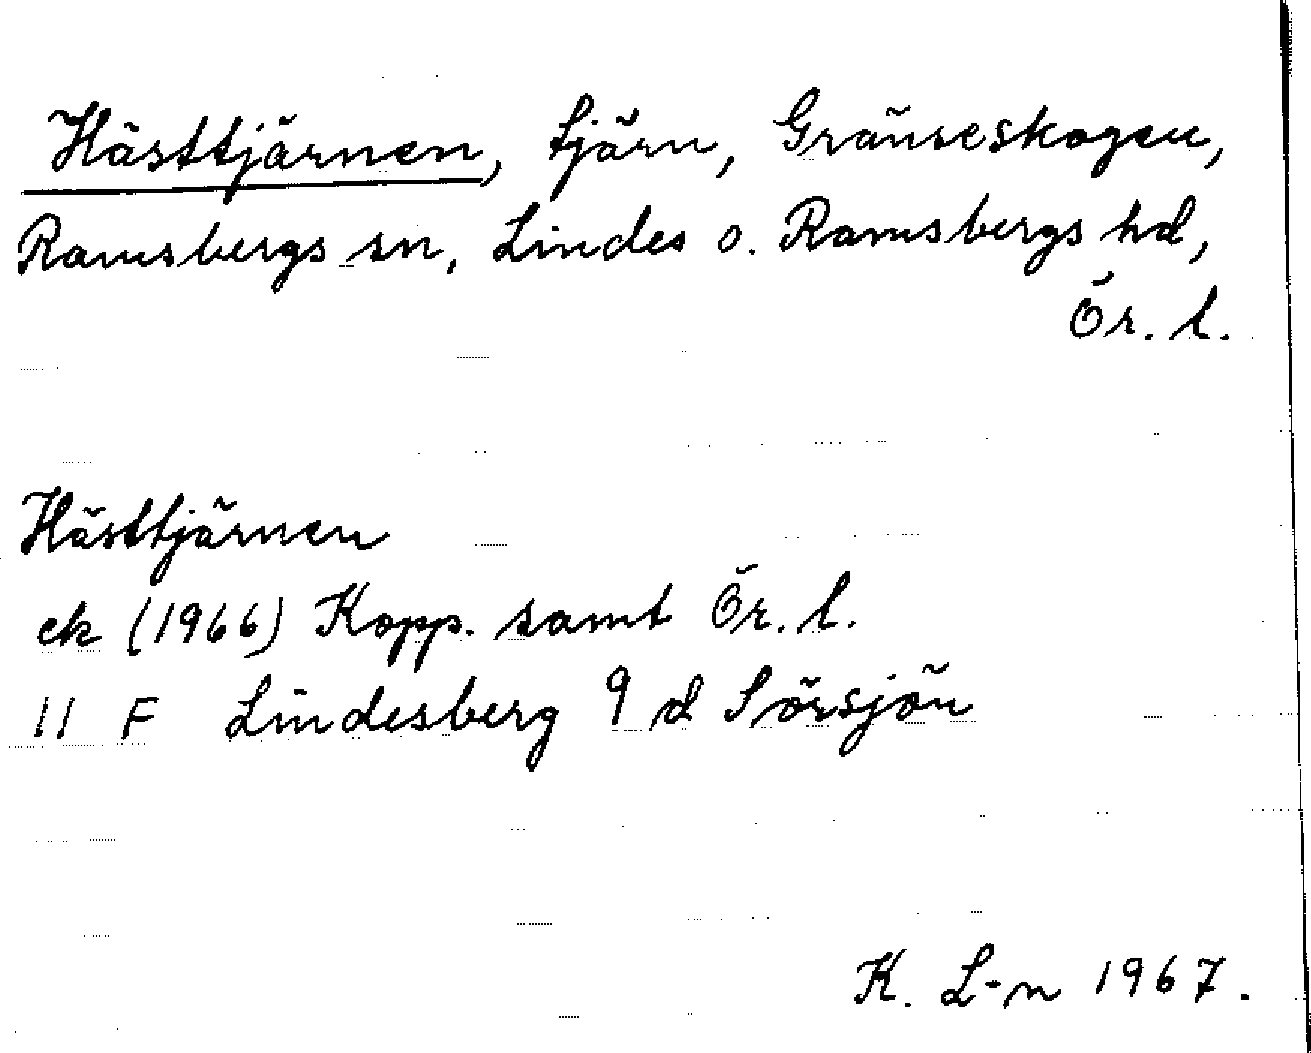 Hästtjärnen, tjärn, Gränseskogen,
Ramsbergs sn, Lindes o. Ramsbergs hd,
Ör. l.
Hästtjärnen
ek (1966) Kopp. samt Ör. l.
11 F Lindesberg 9 d Sörsjön
K. L-n 1967.